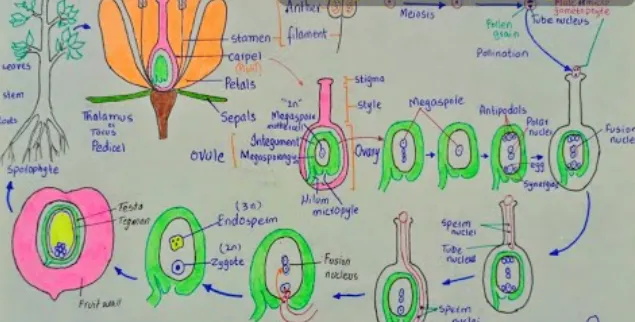 Anther
filament
stamen
carpel
(Pistil)
Petals
Sepals
Thalamus
or
Torus
Pedicel
Leaves
stem
Sporophyte
Meiosis
Pollen
grain
Tube nucleus
Pollination
stigma
style
Ovary
"2n"
Megaspore
mother cell
Integument
Megasporangium
OVULE
Hilum
micropyle
Megaspore
Antipodals
Polar
nuclei
egg
Synergids
Fusion
Sperm
nuclei
Tube
nucleus
Sperm
Fusion
nucleus
(3n)
Endosperm
(2n)
Zygote
Testa
Tegmen
Fruit wall